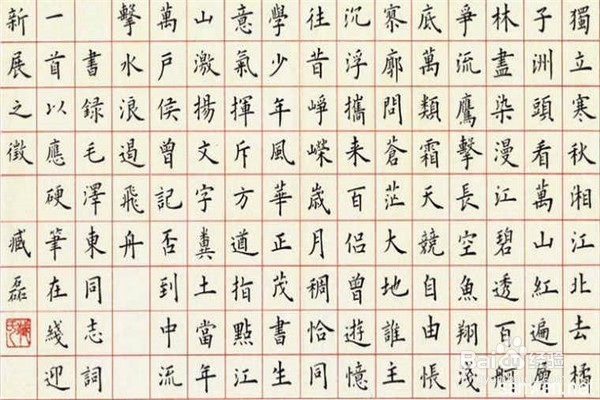 獨立寒秋湘江北去橘
子洲頭看萬山紅遍層
林盡染漫江碧透百舸
爭流鷹擊長空魚翔淺
底萬類霜天競自由悵
寥廓問蒼茫大地誰主
沉浮攜来百侶曾遊憶
往昔崢嶸歳月稠恰同
學少年風華正茂書生
意氣揮斥方遒指點江
山激揚文字糞土當年
萬戶侯曾記否到中流
擊水浪遏飛舟
書録毛澤東同志詞
一首以應硬筆在綫迎
新展之徵 臧磊
Baidu经验